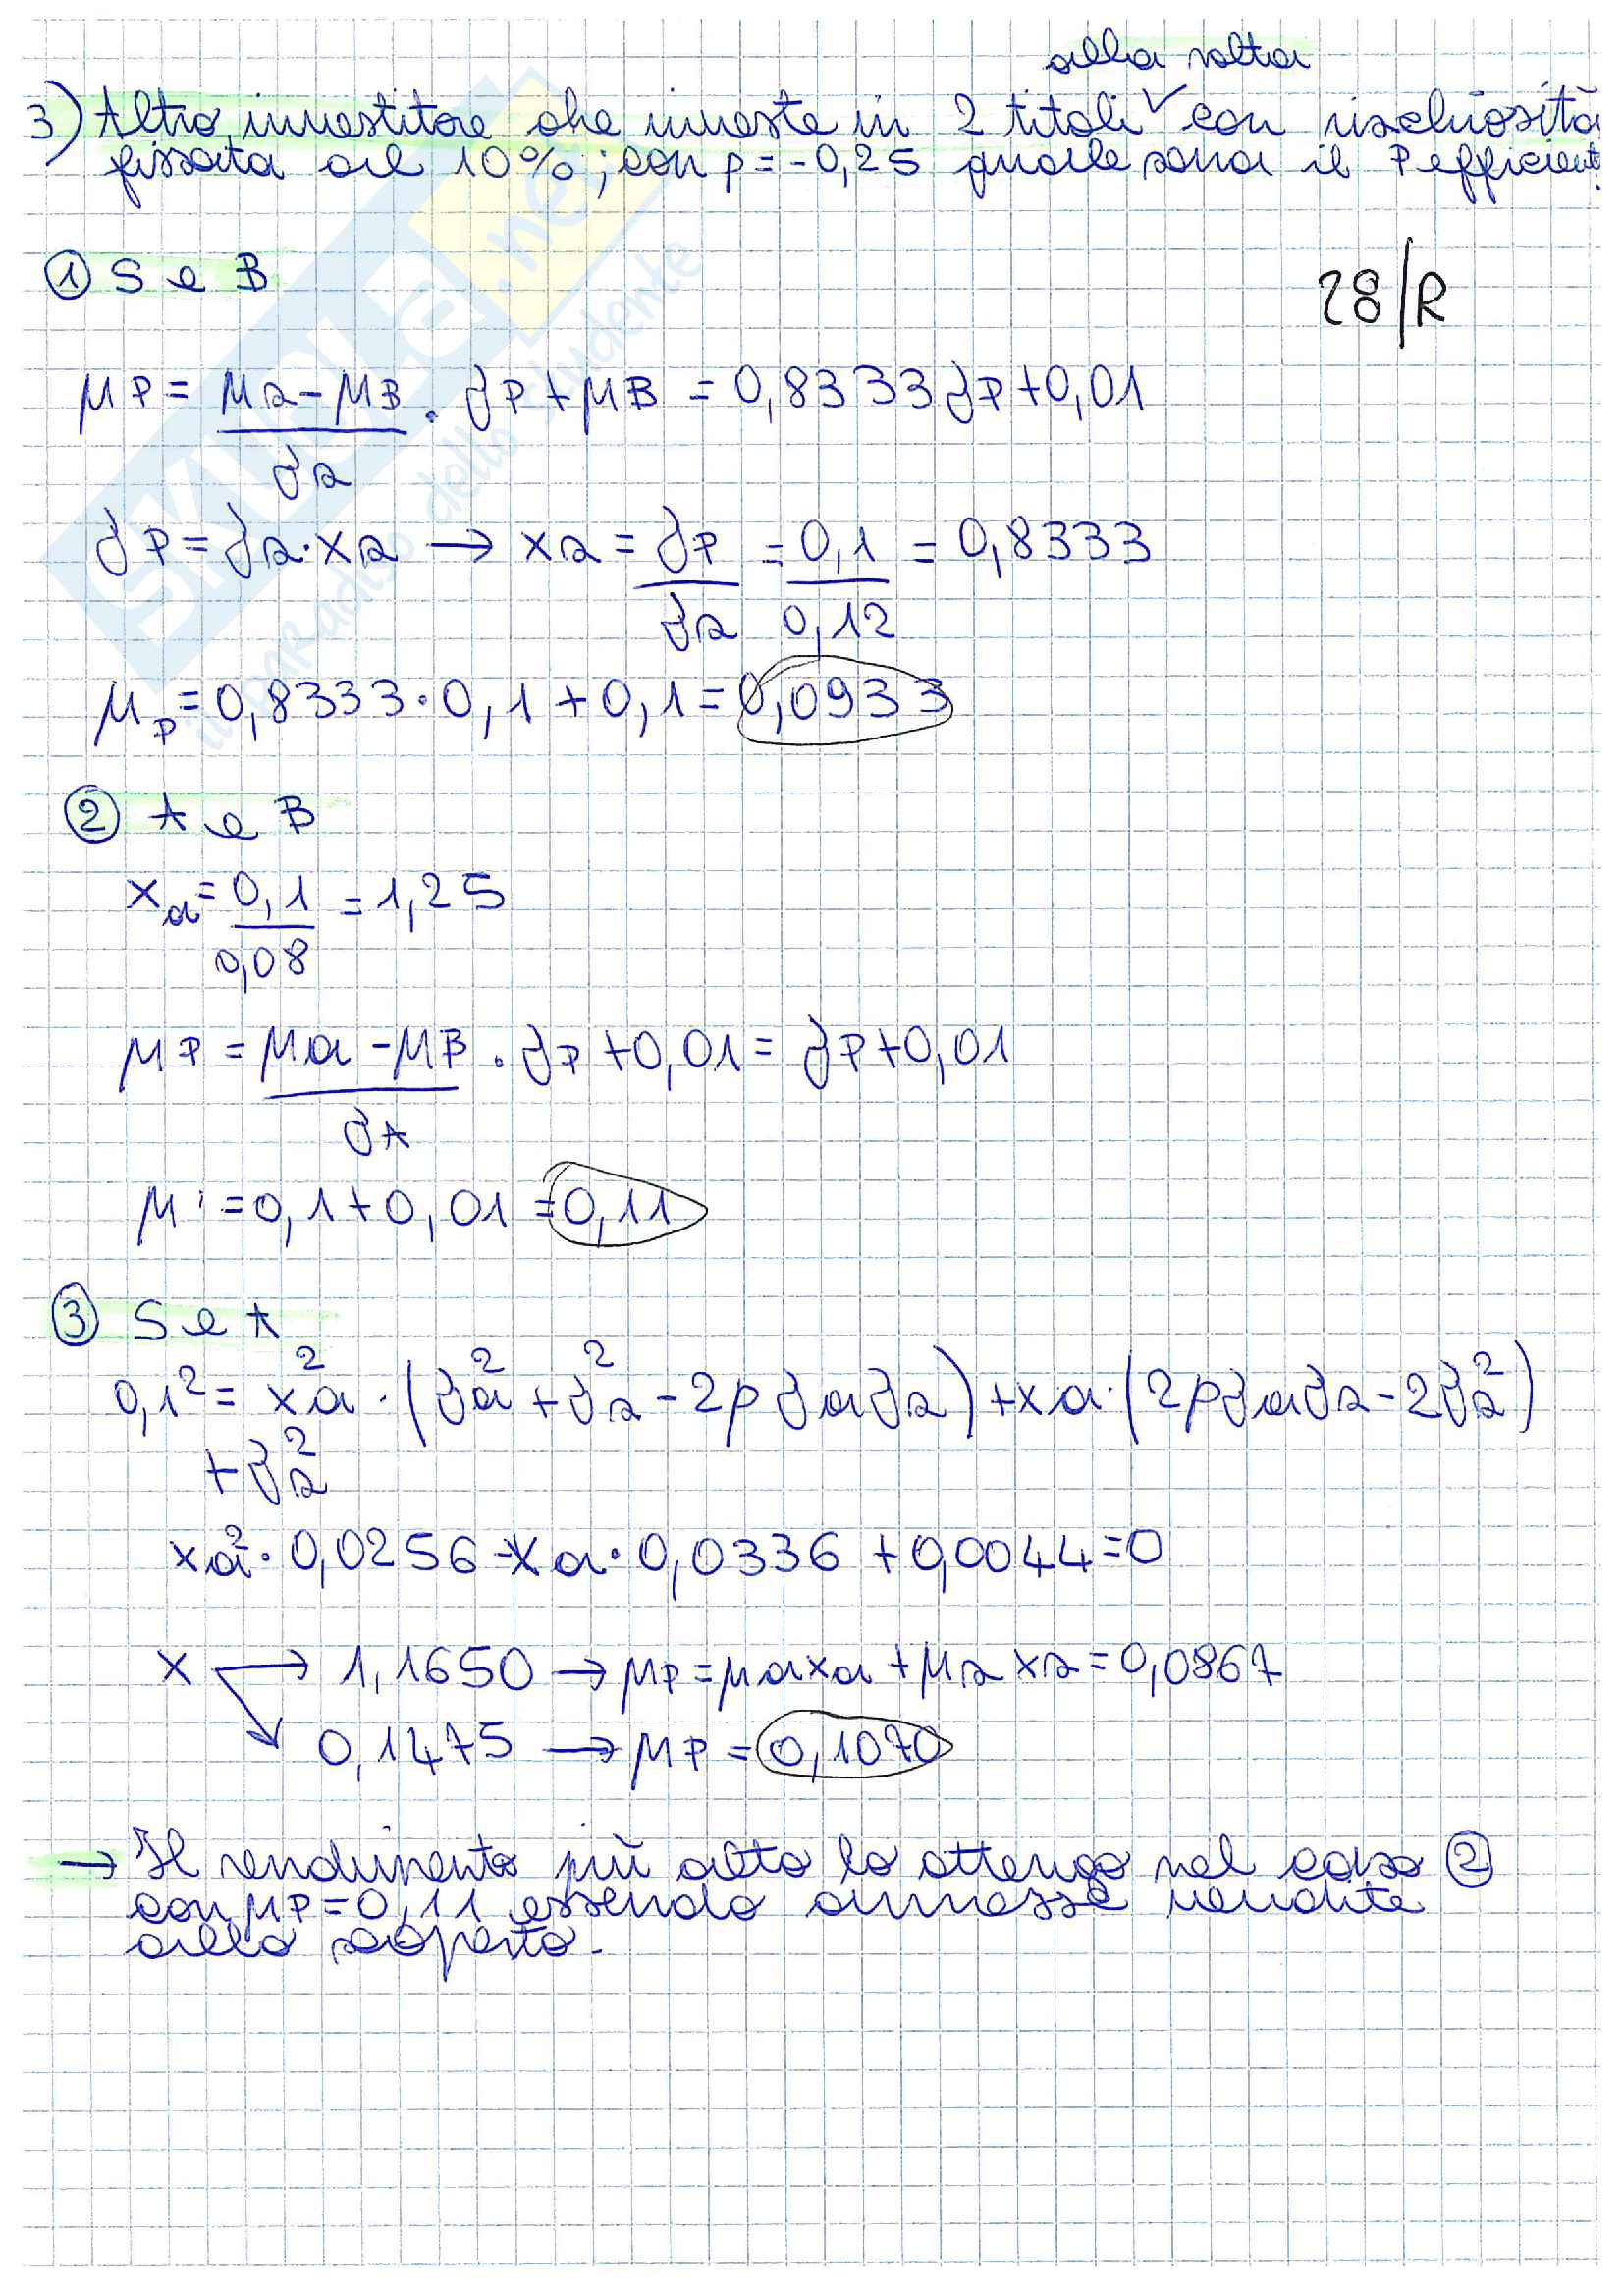 alla volta
3) Altro investitore che investe in 2 titoli ✓ con rischiosità
fissata al 10%; con ρ = -0,25 quale sarà il P efficiente?
① S e B
28/R
μP = μs - μB / σs · σP + μB = 0,8333 σP + 0,01
σP = σs · xs → xs = σP / σs = 0,1 / 0,12 = 0,8333
μP = 0,8333 · 0,1 + 0,1 = 0,0933
② A e B
xa = 0,1 / 0,08 = 1,25
μP = μa - μB / σA · σP + 0,01 = σP + 0,01
μ = 0,1 + 0,01 = 0,11
③ S e A
0,1² = x²a · (σ²a + σ²s - 2ρσaσs) + xa · (2ρσaσs - 2σ²s)
+ σ²s
xa² · 0,0256 - xa · 0,0336 + 0,0044 = 0
x → 1,1650 → μP = μaxa + μsxs = 0,0867
0,1475 → μP = 0,1070
→ Il rendimento più alto lo ottengo nel caso ②
con μP = 0,11 essendo ammesse vendite
allo scoperto.
SKUOLA.net
il paradiso dello studente